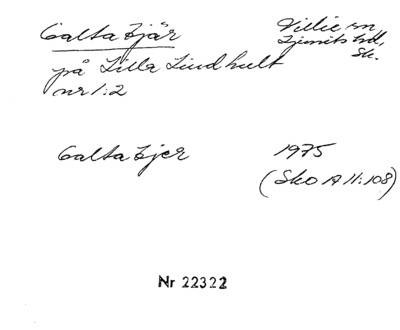 Galtakjär
på Lilla Lindhult
nr 1:2
Villie sn,
Ljunits hd,
Sk.
Galtakjer
1975
(Sko A 11:108)
Nr 22322